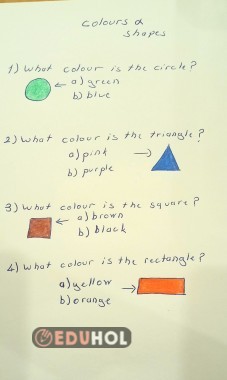 Colours &
shapes
1) What colour is the circle?
a) green
b) blue
2) What colour is the triangle?
a) pink
b) purple
3) What colour is the square?
a) brown
b) black
4) What colour is the rectangle?
a) yellow
b) orange
EDUHOL